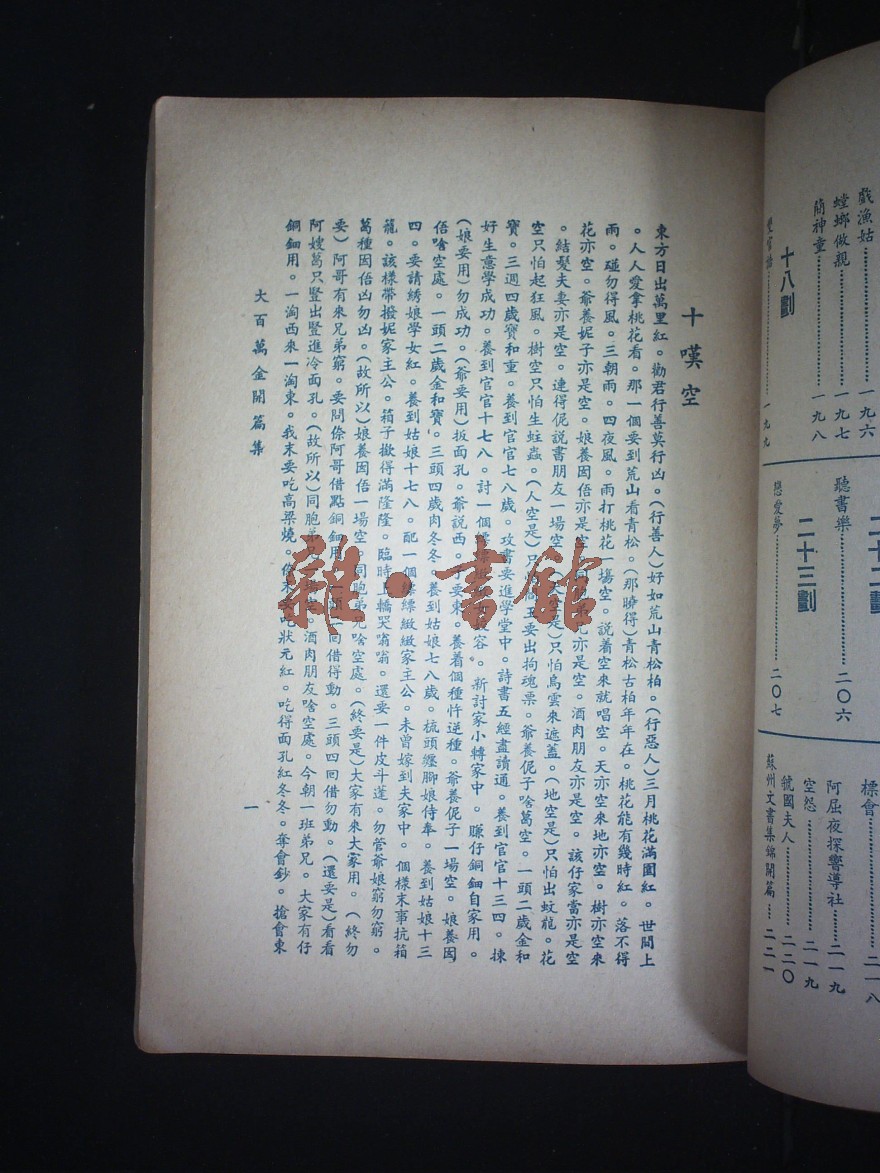 戲漁姑……一九六
螳螂做親……一九七
簡神童……一九八
十八劃
一九九
二十二劃
聽書樂……二〇六
二十三劃
戀愛夢……二〇七
標會……二一八
阿屈夜探響導社……二一九
空怨……二一九
虢國夫人……二二〇
蘇州文書集錦開篇……二二一
十嘆空
東方日出萬里紅。勸君行善莫行凶。(行善人)好如荒山青松柏。(行惡人)三月桃花滿園紅。世間上
。人人愛拿桃花看。那一個要到荒山看青松。(那曉得)青松古柏年年在。桃花能有幾時紅。落不得
雨。碰勿得風。三朝雨。四夜風。雨打桃花一場空。說着空來就唱空。天亦空來地亦空。樹亦空來
花亦空。爺養妮子亦是空。娘養囡倍亦是空。同胞弟兄亦是空。酒肉朋友亦是空。該仔家當亦是空
。結髮夫妻亦是空。連得伲説書朋友一場空。(天空是)只怕烏雲來遮蓋。(地空是)只怕出蛟龍。花
空只怕起狂風。樹空只怕生蛀蟲。(人空是)只怕閻王要出拘魂票。爺養伲子啥葛空。一頭二歲金和
寶。三週四歲寶和重。養到官官七八歲。攻書要進學堂中。詩書五經盡讀通。養到官官十三四。揀
好生意學成功。養到官官十七八。討一個縹縹緻緻女嬌容。新討家小轉家中。賺仔銅鈿自家用。
(娘要用)勿成功。(爺要用)扳面孔。爺說西。了要東。養着個種忤逆種。爺養伲子一場空。娘養囡
倍啥空處。一頭二歲金和寶。三頭四歲肉冬冬。養到姑娘七八歲。梳頭纏腳娘侍奉。養到姑娘十三
四。要請綉娘學女紅。養到姑娘十七八。配一個縹縹緻緻家主公。未曾嫁到夫家中。個樣末事抗箱
籠。該樣帶撥妮家主公。箱子撳得滿隆隆。臨時上轎哭嗡嗡。還要一件皮斗蓬。勿管爺娘窮勿窮。
萬種因倍凶勿凶。(故所以)娘養囡倍一場空。同胞弟兄啥空處。(終要是)大家有來大家用。(終勿
要)阿哥有來兄弟窮。要問倷阿哥借點銅鈿用。一頭一囘借得動。三頭四囘借勿動。(還要是)看看
阿嫂葛只豎出豎進冷面孔。(故所以)同胞弟兄一場空。酒肉朋友啥空處。今朝一班弟兄。大家有仔
銅鈿用。一淘西來一淘東。我末要吃高粱燒。倷末要吃狀元紅。吃得面孔紅冬冬。奪會鈔。搶會東
大百萬金開篇集
一
雜·書館